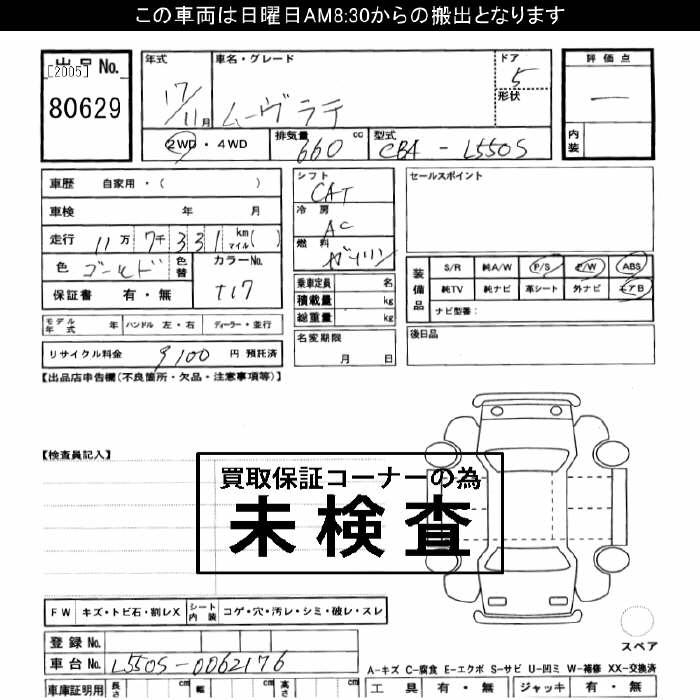 この車両は日曜日AM8:30からの搬出となります
出品No.
[2005]
80629
年式 車名・グレード ドア 5
17/11月 ムーヴラテ 形状
2WD・4WD 排気量 660 cc 型式 CBA - L550S
評価点
—
内装
車歴 自家用・( )
車検 年 月
走行 11万 7千 331 km マイル( )
色 ゴールド 色替 カラーNo.
保証書 有・無 T17
モデル年式 年 ハンドル 左・右 ディーラー・並行
リサイクル料金 9100 円 預託済
シフト CAT
冷房 AC
燃料 ガソリン
乗車定員 名
積載量 kg
総重量 kg
名変期限
月 日
セールスポイント
装備品 S/R 純A/W P/S P/W ABS
純TV 純ナビ 革シート 外ナビ エアB
ナビ型番:
後日品
【出品店申告欄(不良箇所・欠品・注意事項等)】
【検査員記入】
買取保証コーナーの為
未検査
FW キズ・トビ石・割レX シート内装 コゲ・穴・汚レ・シミ・破レ・スレ
登録No.
車台No. L550S-0062176
車庫証明用 長さ cm 幅 cm 高さ cm
スペア
A-キズ C-腐食 E-エクボ S-サビ U-凹ミ W-補修 XX-交換済
工具 有・無 ジャッキ 有・無